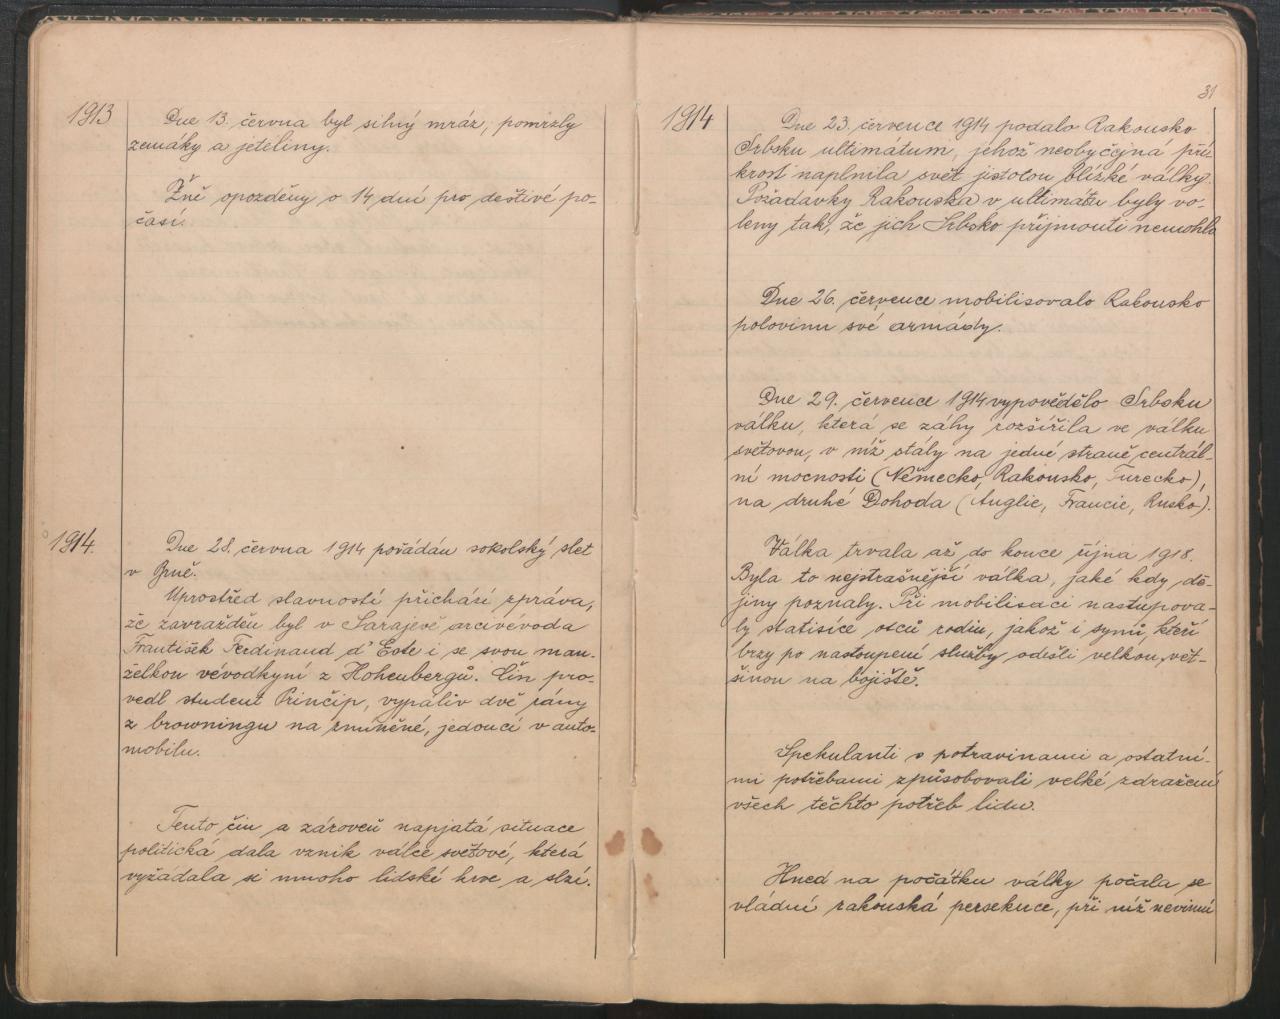 1913
Dne 13. června byl silný mráz, pomrzly
zemáky a jeteliny.
Žně opozděny o 14 dní pro deštivé po-
časí.
1914.
Dne 28. června 1914 pořádán sokolský slet
v Brně.
Uprostřed slavností přichází zpráva,
že zavražděn byl v Sarajevě arcivévoda
František Ferdinand d' Este i se svou man-
želkou vévodkyní z Hohenbergů. Čin pro-
vedl student Princip, vypáliv dvě rány
z browningu na zmíněné, jedoucí v auto-
mobilu.
Tento čin a zároveň napjatá situace
politická dala vznik válce světové, která
vyžádala si mnoho lidské krve a slzí.
31
1914
Dne 23. července 1914 podalo Rakousko
Srbsku ultimatum, jehož neobyčejná pří-
krost naplnila svět jistotou blízké války.
Požadavky Rakouska v ultimátu byly vo-
leny tak, že jich Srbsko přijmouti nemohlo
Dne 26. července mobilisovalo Rakousko
polovinu své armády.
Dne 29. července 1914 vypovědělo Srbsku
válku, která se záhy rozšířila ve válku
světovou, v níž stály na jedné straně centrál-
ní mocnosti (Německo, Rakousko, Turecko),
na druhé Dohoda (Anglie, Francie, Rusko).
Válka trvala až do konce října 1918.
Byla to nejstrašnější válka, jaké kdy dě-
jiny poznaly. Při mobilisaci nastupova-
ly statisíce otců rodin, jakož i synů, kteří
brzy po nastoupení služby odešli velkou vět-
šinou na bojiště.
Spekulanti s potravinami a ostatní-
mi potřebami způsobovali velké zdražení
všech těchto potřeb lidu.
Hned na počátku války počala se
vládní rakouská persekuce, při níž nevinní